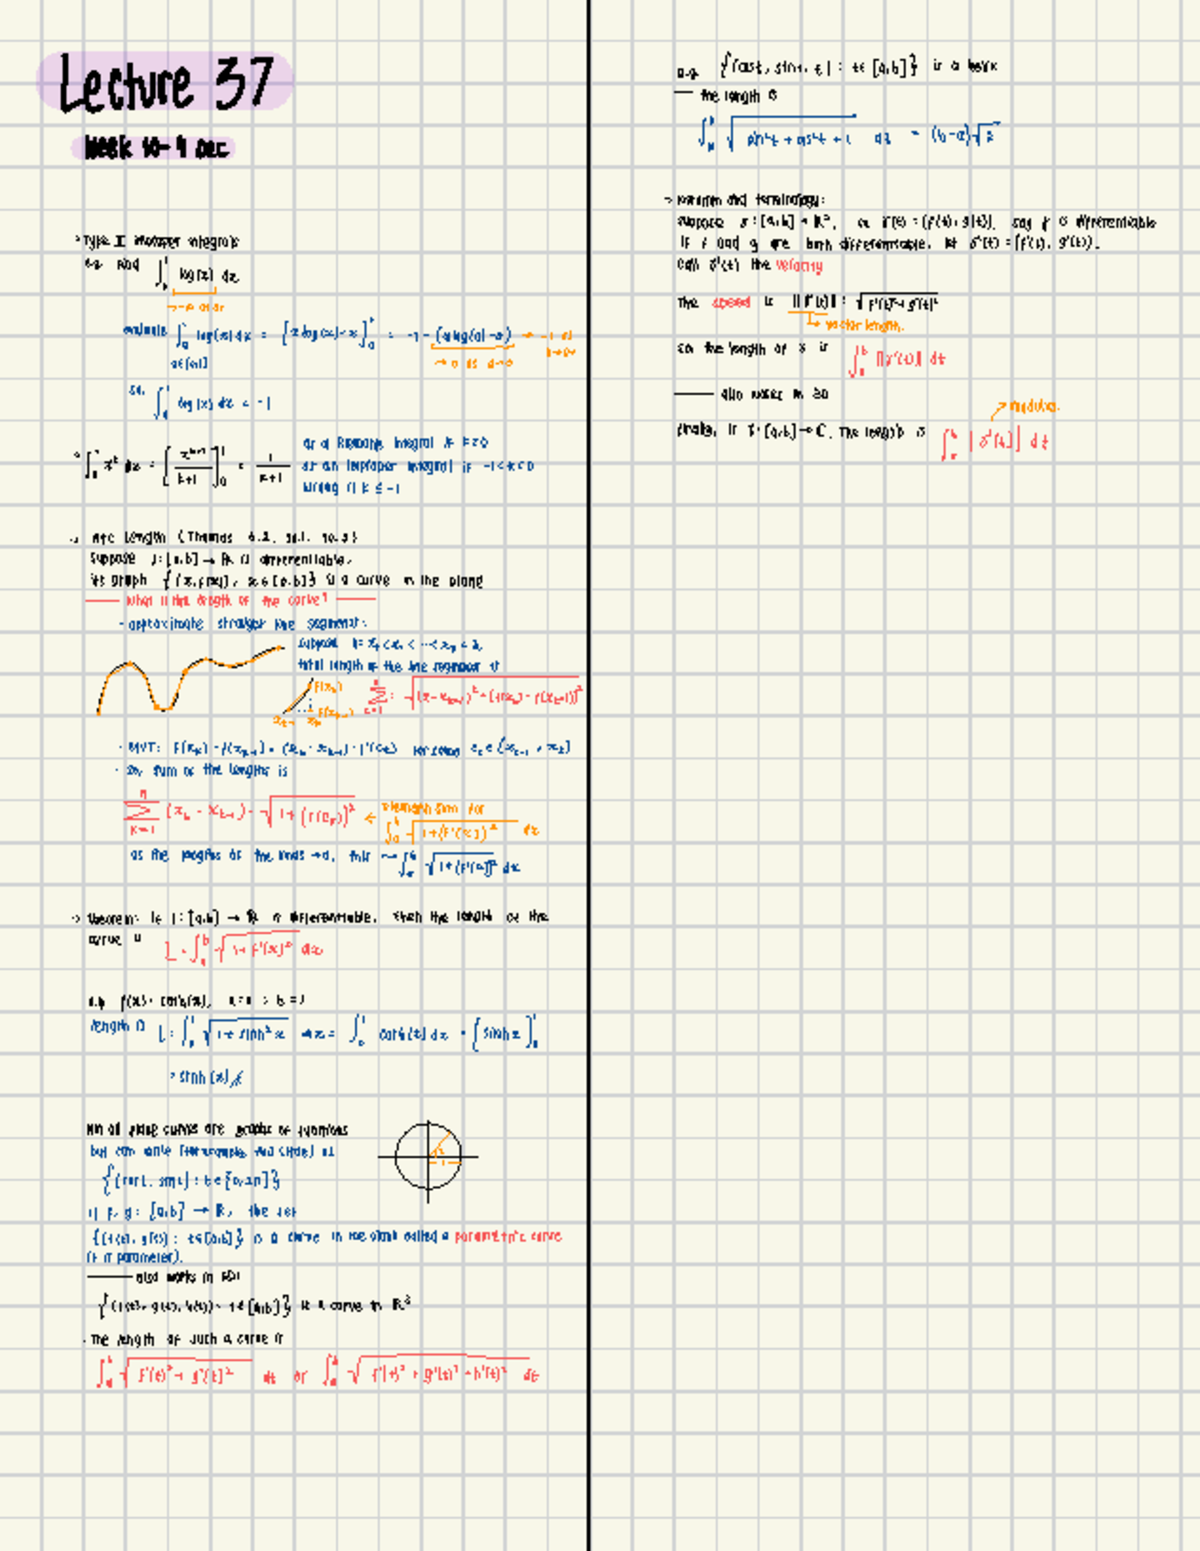 Lecture 37
Week 10 - 4 Dec
Type II improper integrals
e.g. find ∫₀¹ log(x) dx
evaluate ∫ₐ¹ log(x) dx = [x log(x) - x]ₐ¹ = -1 - (a log(a) - a) → -1 as a→0+
→ 0 as a→0
a∈(0,1]
so, ∫₀¹ log(x) dx = -1
∫₀¹ xᵏ dx = [xᵏ⁺¹/k+1]₀¹ = 1/k+1
as a Riemann integral if k≥0
as an improper integral if -1<k<0
wrong if k ≤ -1
Arc Length (Thomas 6.3, 11.1, 10.3)
Suppose f:[a,b] → ℝ is differentiable.
its graph {(x, f(x)), x∈[a,b]} is a curve in the plane
what is the length of the curve?
- approximate straight line segments.
suppose a = x₀ < x₁ < ... < xₙ = b,
total length of the line segments is
f(xₖ)
f(xₖ₋₁)
xₖ₋₁ xₖ
- MVT: f(xₖ) - f(xₖ₋₁) = (xₖ - xₖ₋₁) · f'(cₖ) for some cₖ ∈ (xₖ₋₁, xₖ)
- so, sum of the lengths is
Riemann sum for
∫ₐᵇ √(1+(f'(x))²) dx
as the lengths of the → 0, this → ∫ₐᵇ √(1+(f'(x))²) dx
theorem: if f:[a,b] → ℝ is differentiable, then the length of the
curve is L = ∫ₐᵇ √(1+f'(x)²) dx
e.g. f(x) = cosh(x),
length is L = ∫₀¹ √(1+sinh²x) dx = ∫₀¹ cosh(x) dx = [sinh x]₀¹
Not all plane curves are graphs of functions
but can write (for example, the circle) as
{(cos t, sin t) : t∈[0,2π]}
if f, g: [a,b] → ℝ, the set
{(f(t), g(t)) : t∈[a,b]} is a curve in the plane called a parametric curve
(t is parameter).
also works in 3D!
{(f(t), g(t), h(t)) : t∈[a,b]} is a curve in ℝ³
- The length of such a curve is
∫ₐᵇ √(f'(t)² + g'(t)²) dt or ∫ₐᵇ √(f'(t)² + g'(t)² + h'(t)²) dt
e.g. {(cos t, sin t, t) : t∈[a,b]} is a helix
the length is
∫ₐᵇ √(sin²t + cos²t + 1) dt = (b-a)√2
and terminology:
suppose γ:[a,b] → ℝ², so γ(t) = (f(t), g(t)). say γ is differentiable
if f and g are both differentiable. let γ'(t) = (f'(t), g'(t)).
call γ'(t) the velocity
The speed is ||γ'(t)|| = √(f'(t)²+g'(t)²)
vector length.
so the length of γ is ∫ₐᵇ ||γ'(t)|| dt
also works in 3D
modulus.
finally, if γ:[a,b] → ℂ. The length is ∫ₐᵇ |γ'(t)| dt